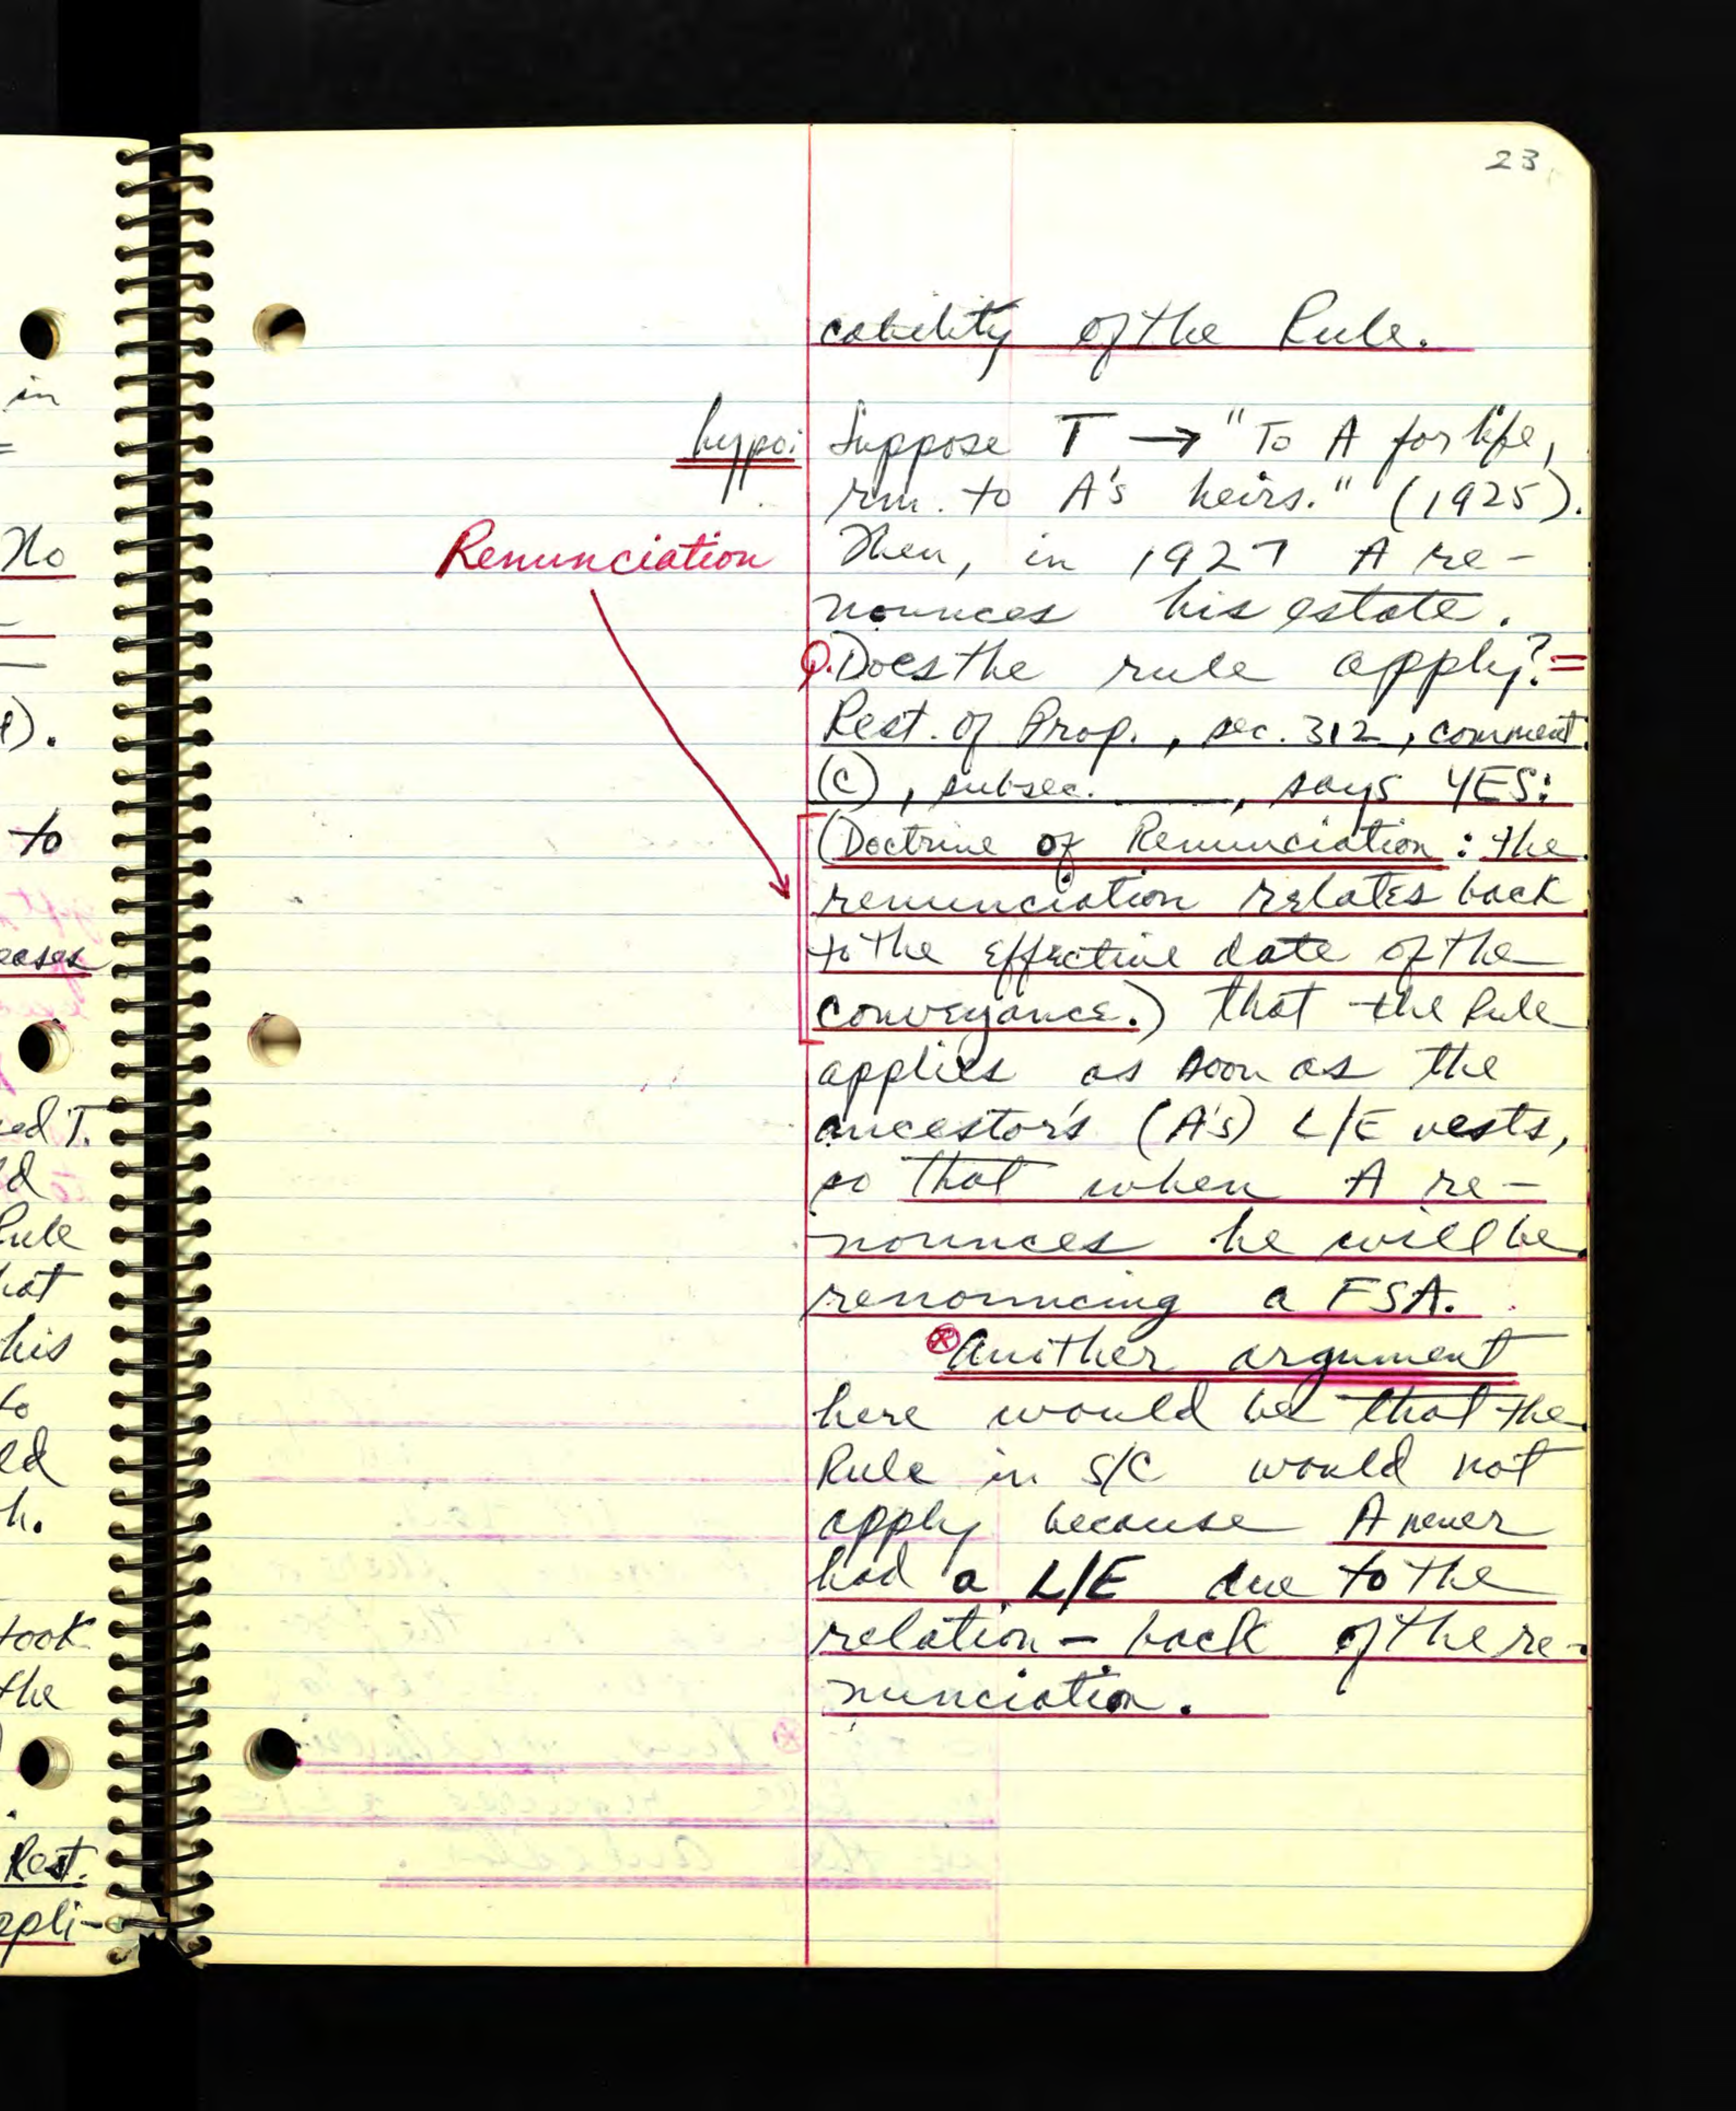 in
No
t).
to
eases
ed T.
d
Rule
hat
his
to
ld
h.
took
the
Rest.
appli-
23
cability of the Rule.
hypo: Suppose T → "To A for life,
rm. to A's heirs." (1925).
Renunciation Then, in 1927 A re-
nounces his estate.
Q. Does the rule apply? =
Rest. of Prop., sec. 312, comment
(c), subsec. ____, says YES:
(Doctrine of Renunciation: the
renunciation relates back
to the effective date of the
conveyance.) that the Rule
applies as soon as the
ancestor's (A's) L/E vests,
so that when A re-
nounces he will be
renouncing a FSA.
⊗ Another argument
here would be that the
Rule in S/C would not
apply because A never
had a L/E due to the
relation-back of the re-
nunciation.